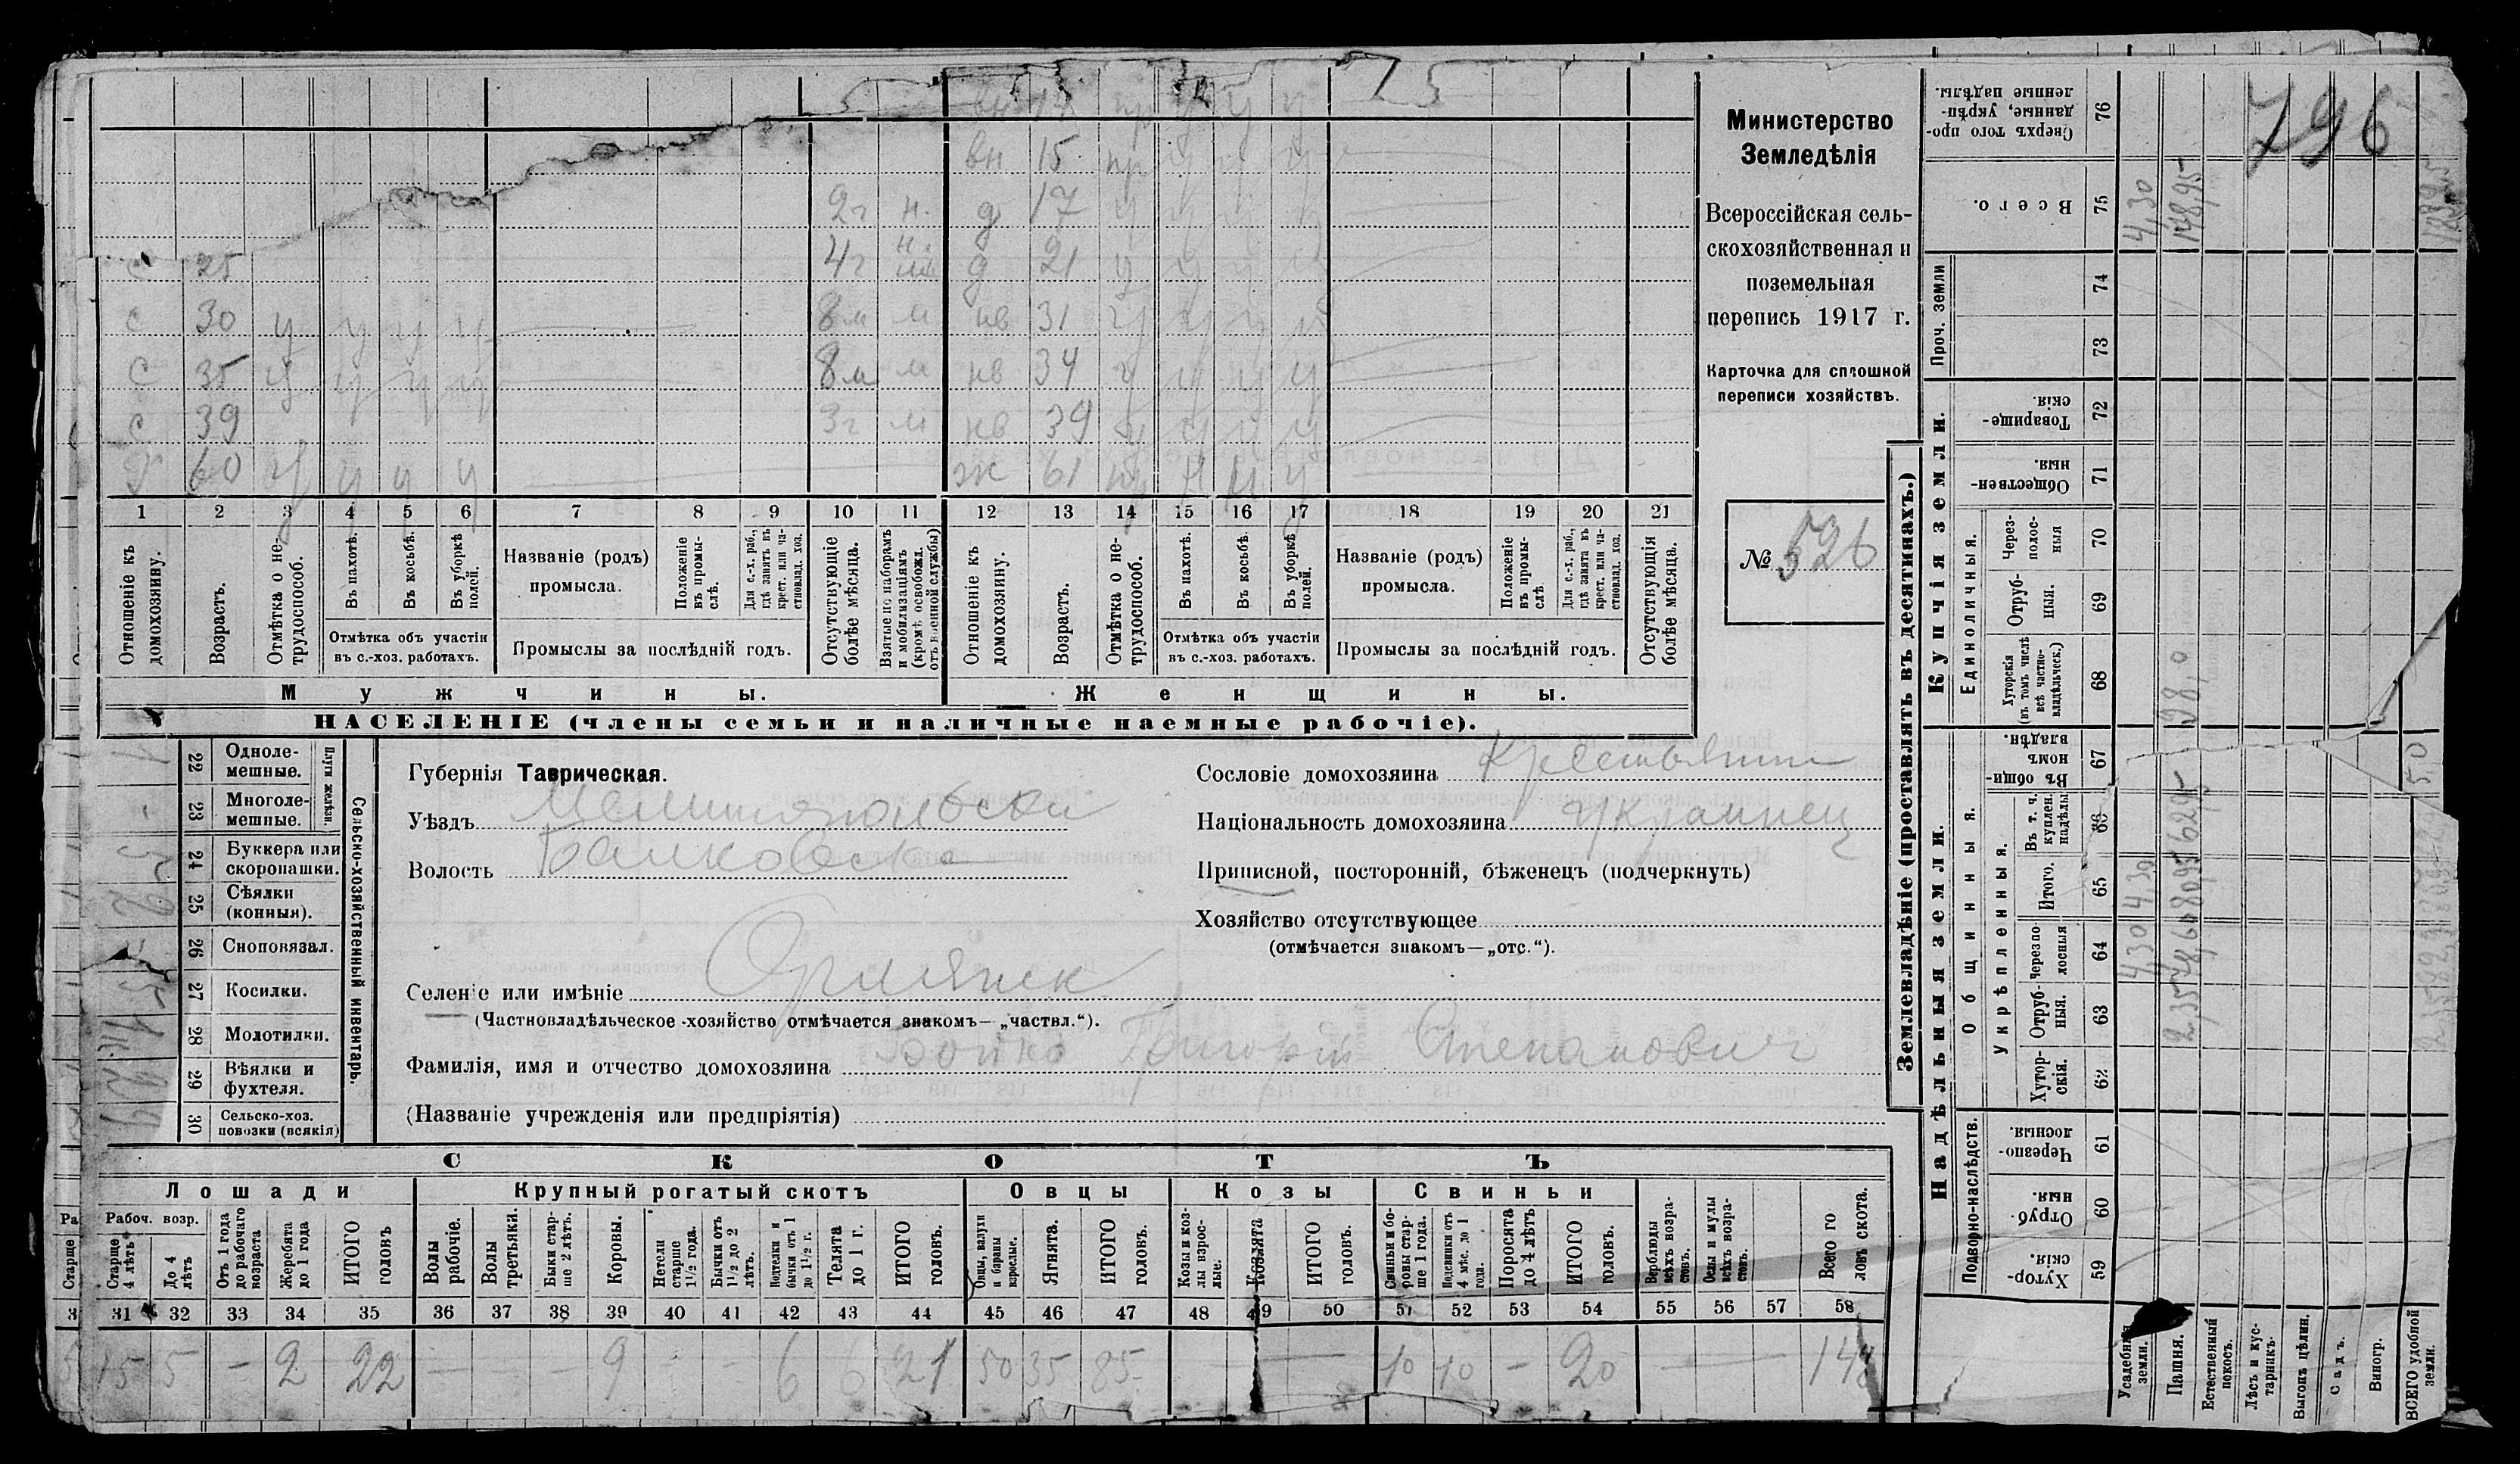 796
Министерство
Земледѣлія
Всероссійская сель-
скохозяйственная и
поземельная
перепись 1917 г.
Карточка для сплошной
переписи хозяйствъ.
№ 526
вн 17 пр у у у
вн 15 пр у у у
2г н. д 17 у у у у
с 25 4г д 21 у у у у
с 30 у у у у 8м м нв 31 у у у у
с 35 у у у у 8м м нв 34 у у у у
с 39 3г м нв 39 у у у у
60 у у у у ж 61 пр у у у
1 2 3 4 5 6 7 8 9 10 11 12 13 14 15 16 17 18 19 20 21
Отношеніе къ домохозяину.
Возрастъ.
Отмѣтка о не-трудоспособ.
Въ пахотѣ.
Въ косьбѣ.
Въ уборкѣ полей.
Отмѣтка объ участіи
въ с.-хоз. работахъ.
Названіе (родъ)
промысла.
Положеніе въ промы-слѣ.
Для с.-х. раб., гдѣ занятъ въ крест. или ча-стновлад. хоз.
Промыслы за послѣдній годъ.
Отсутствующіе болѣе мѣсяца.
Взятые по наборамъ и мобилизаціямъ (кромѣ освобожд. отъ военной службы)
Отношеніе къ домохозяину.
Возрастъ.
Отмѣтка о не-трудоспособ.
Въ пахотѣ.
Въ косьбѣ.
Въ уборкѣ полей.
Отмѣтка объ участіи
въ с.-хоз. работахъ.
Названіе (родъ)
промысла.
Положеніе въ промы-слѣ
Для с.-х. раб., гдѣ занята въ крест. или ча-стновлад. хоз.
Промыслы за послѣдній годъ.
Отсутствующія болѣе мѣсяца.
Мужчины.
Женщины.
НАСЕЛЕНІЕ (члены семьи и наличные наемные рабочіе).
Сельско-хозяйственный инвентарь.
Плуги желѣзн.
22 Одноле-мешные.
23 Многоле-мешные.
24 Буккера или скоропашки.
25 Сѣялки (конныя).
26 Сноповязал.
27 Косилки.
28 Молотилки.
29 Вѣялки и фухтеля.
30 Сельско-хоз. повозки (всякія)
Губернія Таврическая.
Уѣздъ Мелитопольски
Волость Балковска
Селеніе или имѣніе Орлянск
(Частновладѣльческое хозяйство отмѣчается знакомъ—„частвл.“).
Сословіе домохозяина Крестьянин
Національность домохозяина Украинец
Приписной, посторонній, бѣженецъ (подчеркнуть)
Хозяйство отсутствующее
(отмѣчается знакомъ—„отс.“).
Фамилія, имя и отчество домохозяина Бойко Григорій Степанович
(Названіе учрежденія или предпріятія)
СКОТЪ
Лошади
Крупный рогатый скотъ
Овцы
Козы
Свиньи
Рабоч. возр.
Старше 4 лѣтъ
До 4 лѣтъ
Отъ 1 года до рабочаго возраста
Жеребята до 1 года
ИТОГО головъ
Волы рабочіе.
Волы третьяки.
Быки стар-ше 2 лѣтъ.
Коровы.
Нетели старше 1½ года.
Бычки отъ 1½ до 2 лѣтъ.
Подтелки и бычки отъ 1 до 1½ г.
Телята до 1 г.
ИТОГО головъ.
Овцы, валухи и бараны взрослые.
Ягнята.
ИТОГО головъ.
Козы и коз-лы взрос-лые.
Козлята
ИТОГО головъ.
Свиньи и бо-ровы стар-ше 1 года.
Подсвинки отъ 4 мѣс. до 1 года.
Поросята до 4 мѣсъ
ИТОГО головъ.
Верблюды всѣхъ возра-стовъ.
Ослы и мулы всѣхъ возра-стовъ.
Всего го ловъ скота.
31 32 33 34 35 36 37 38 39 40 41 42 43 44 45 46 47 48 49 50 51 52 53 54 55 56 57 58
15 5 - 2 22 — — — 9 - - 6 6 21 50 35 85 — 10 10 - 20 — 148
Землевладѣніе (проставлять въ десятинахъ.)
Купчія земли.
Надѣльныя земли.
Сверхъ того про-данные, укрѣп-ленные надѣлы. 76
Всего. 75
Проч. земли 74 73
Товарище-скія. 72
Обществен-ныя. 71
Единоличныя.
Через-полос-ныя 70
Отруб-ныя. 69
Хуторскія (въ томъ числѣ всѣ частно-владѣльческ.) 68
Общинныя.
Въ общи-номъ владѣн. 67
Укрѣпленныя.
Въ т. ч. куплен. надѣлы 66
Итого. 65
Черезпо-лосныя 64
Отруб-ныя. 63
Хутор-скія. 62
Подворно-наслѣдств.
Черезпо-лосныя. 61
Отруб-ныя. 60
Хутор-скія. 59
Усадебныя земли.
Пашня.
Естественный покосъ.
Лѣсъ и кус-тарникъ.
Выгонъ цѣлин.
Садъ.
Виногр.
ВСЕГО удобной земли.
4,30 4,30 4,30
2,35 78,60 80,95 62,95 98,0 148,95